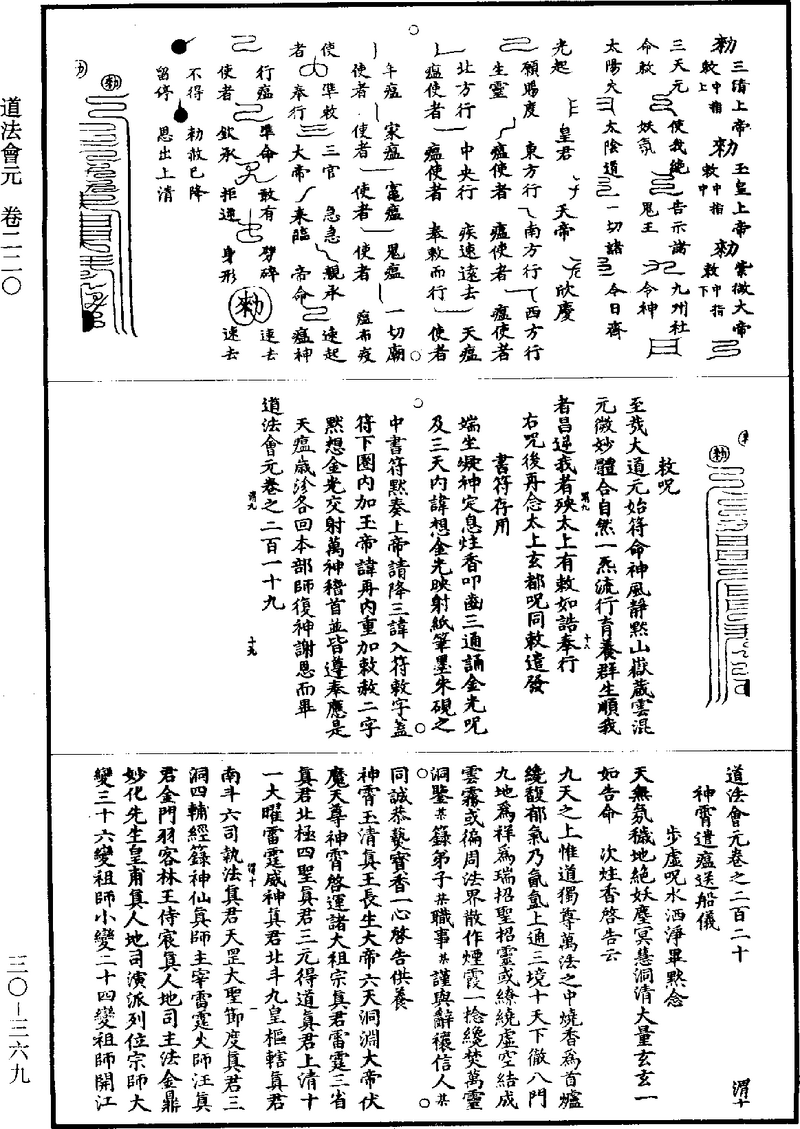 道法會元 卷二二〇
三〇－三六九
勑 三清上帝 勑 玉皇上帝 勑 紫微大帝
敕中指上 敕中指中 敕中指下
三天元 使我施 告示諸 九州社
命敕 妖氛 鬼王 令神
太陽火 太陰道 一切諸 令日齊
光起 皇君 天帝 欣慶
願賜度 東方行 南方行 西方行
生靈 瘟使者 瘟使者 瘟使者
北方行 中央行 疾速遠去 天瘟
瘟使者 瘟使者 奉敕而行 使者
年瘟 家瘟 竈瘟 鬼瘟 一切廟
使者 使者 使者 使者 瘟布疫
使 準敕 三官 急急 親承 速起
者 奉行 大帝 来臨 帝命 瘟神
行瘟 準命 敢有 劈碎 速去
使者 欽承 拒逆 身形 勑 速去
不得 勑赦已降
留停 恩出上清
勑
勑
敕呪
至哉大道元始符命神風靜默山嶽藏雲混
元微妙體合自然一炁流行育養群生順我
者昌逆我者殃太上有敕如誥奉行
右呪後再念太上玄都呪同敕遣發
書符存用
端坐凝神定息炷香叩齒三通誦金光呪
及三天內諱想金光映射紙筆墨朱硯之
中書符默奏上帝請降三諱入符敕字蓋
符下圈內加玉帝諱再內重加敕赦二字
默想金光交射萬神稽首並皆遵奉應是
天瘟歲沴各回本部師復神謝恩而畢
道法會元卷之二百一十九
道法會元卷之二百二十 渭十
神霄遣瘟送船儀
步虛呪水洒淨畢默念
天無氛穢地絕妖塵冥慧洞清大量玄玄一
如告命 次炷香啓告云
九天之上惟道獨尊萬法之中燒香為首爐
纔馥郁氣乃氤氳上通三境十天下徹八門
九地為祥為瑞招聖招靈或繚繞虛空結成
雲霧或徧周法界散作煙霞一捻纔焚萬靈
洞鑒某籙弟子某職事某謹與辭禳信人某
同誠恭爇寶香一心啓告供養
神霄玉清真王長生大帝六天洞淵大帝伏
魔天尊神霄啓運諸大祖宗真君雷霆三省
真君北極四聖真君三元得道真君上清十
一大曜雷霆威神真君北斗九皇樞轄真君
南斗六司執法真君天罡大聖節度真君三
洞四輔經籙神仙真師主宰雷霆火師汪真
君金門羽客林王侍宸真人地司主法金鼎
妙化先生皇甫真人地司演派列位宗師大
變三十六變祖師小變二十四變祖師開江